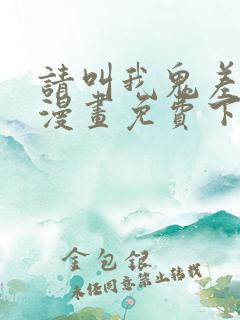 請叫我鬼差
漫畫免費下
金包銀
未經同意禁止轉載